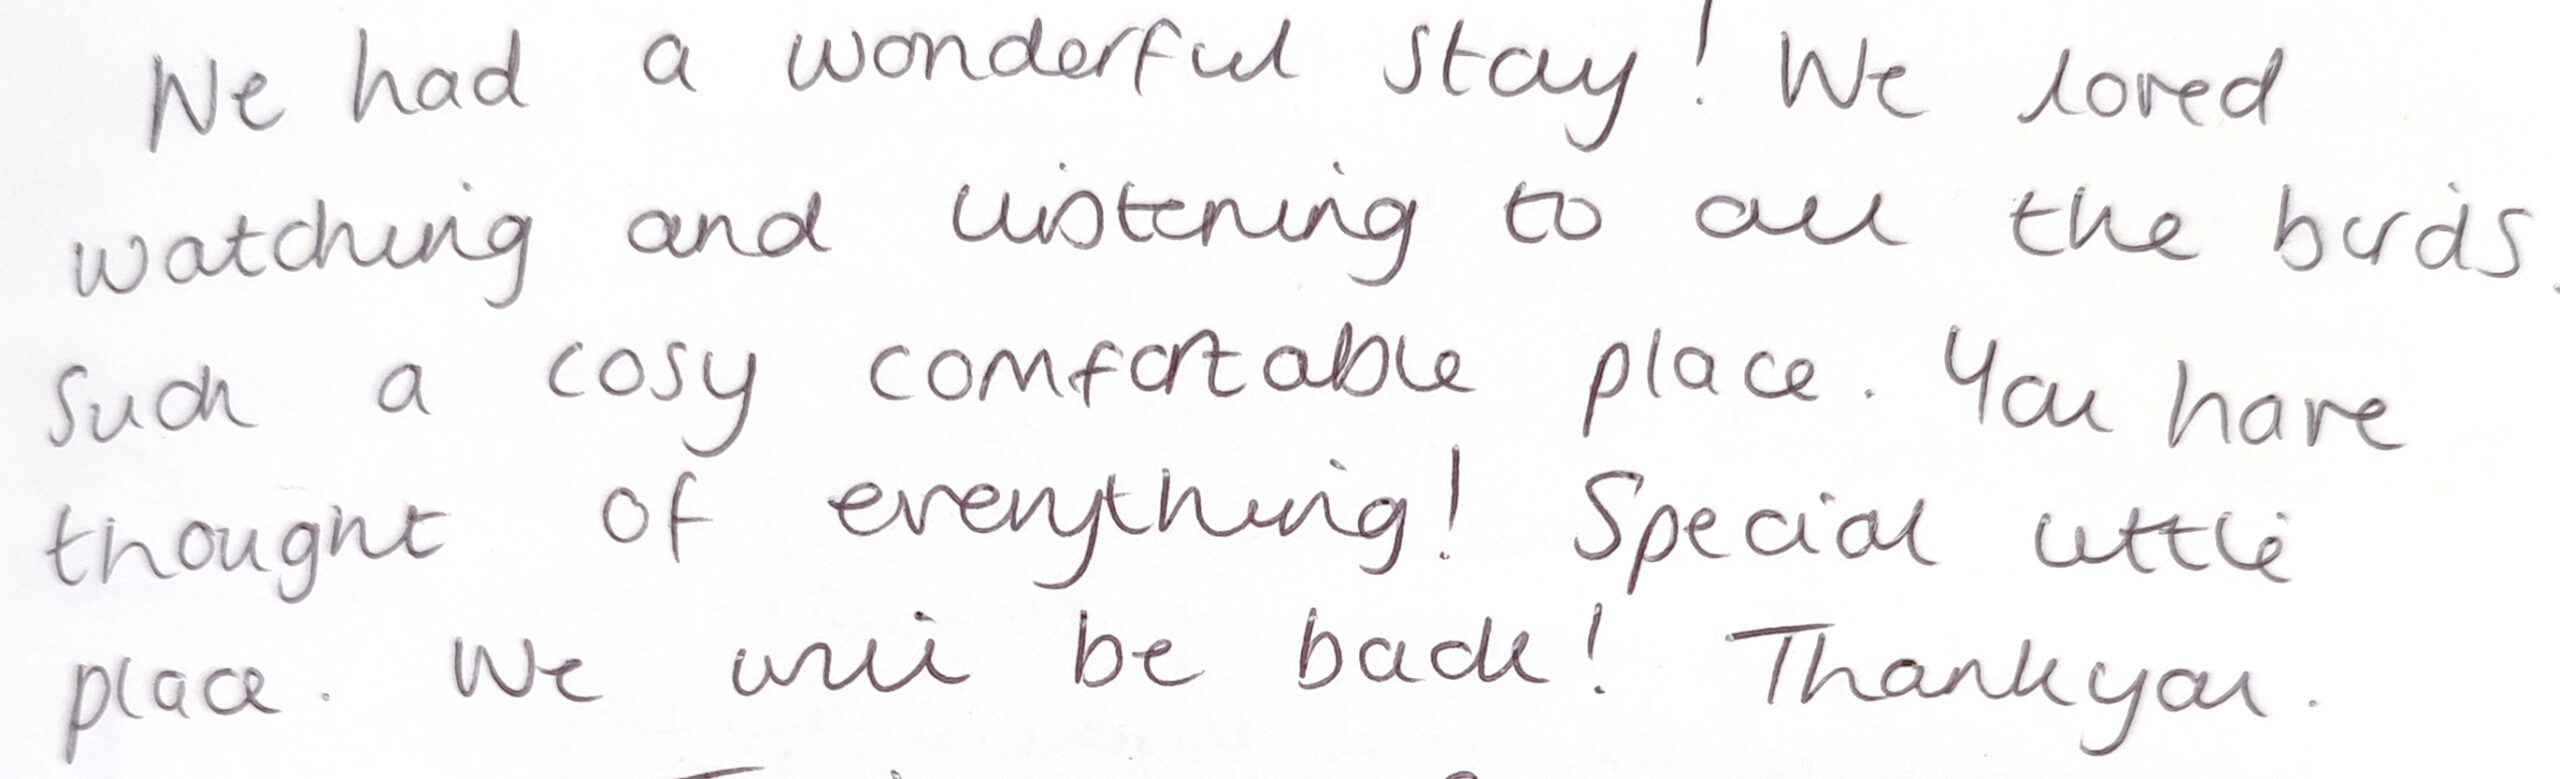 We had a wonderful stay! We loved
watching and listening to all the birds.
Such a cosy comfortable place. You have
thought of everything! Special little
place. We will be back! Thankyou.